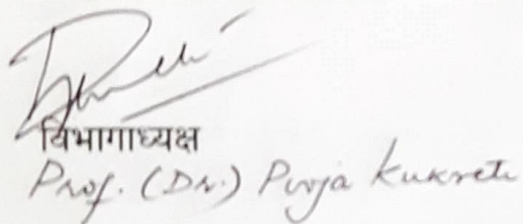 विभागाध्यक्ष
Prof. (Dr.) Pooja Kukreti